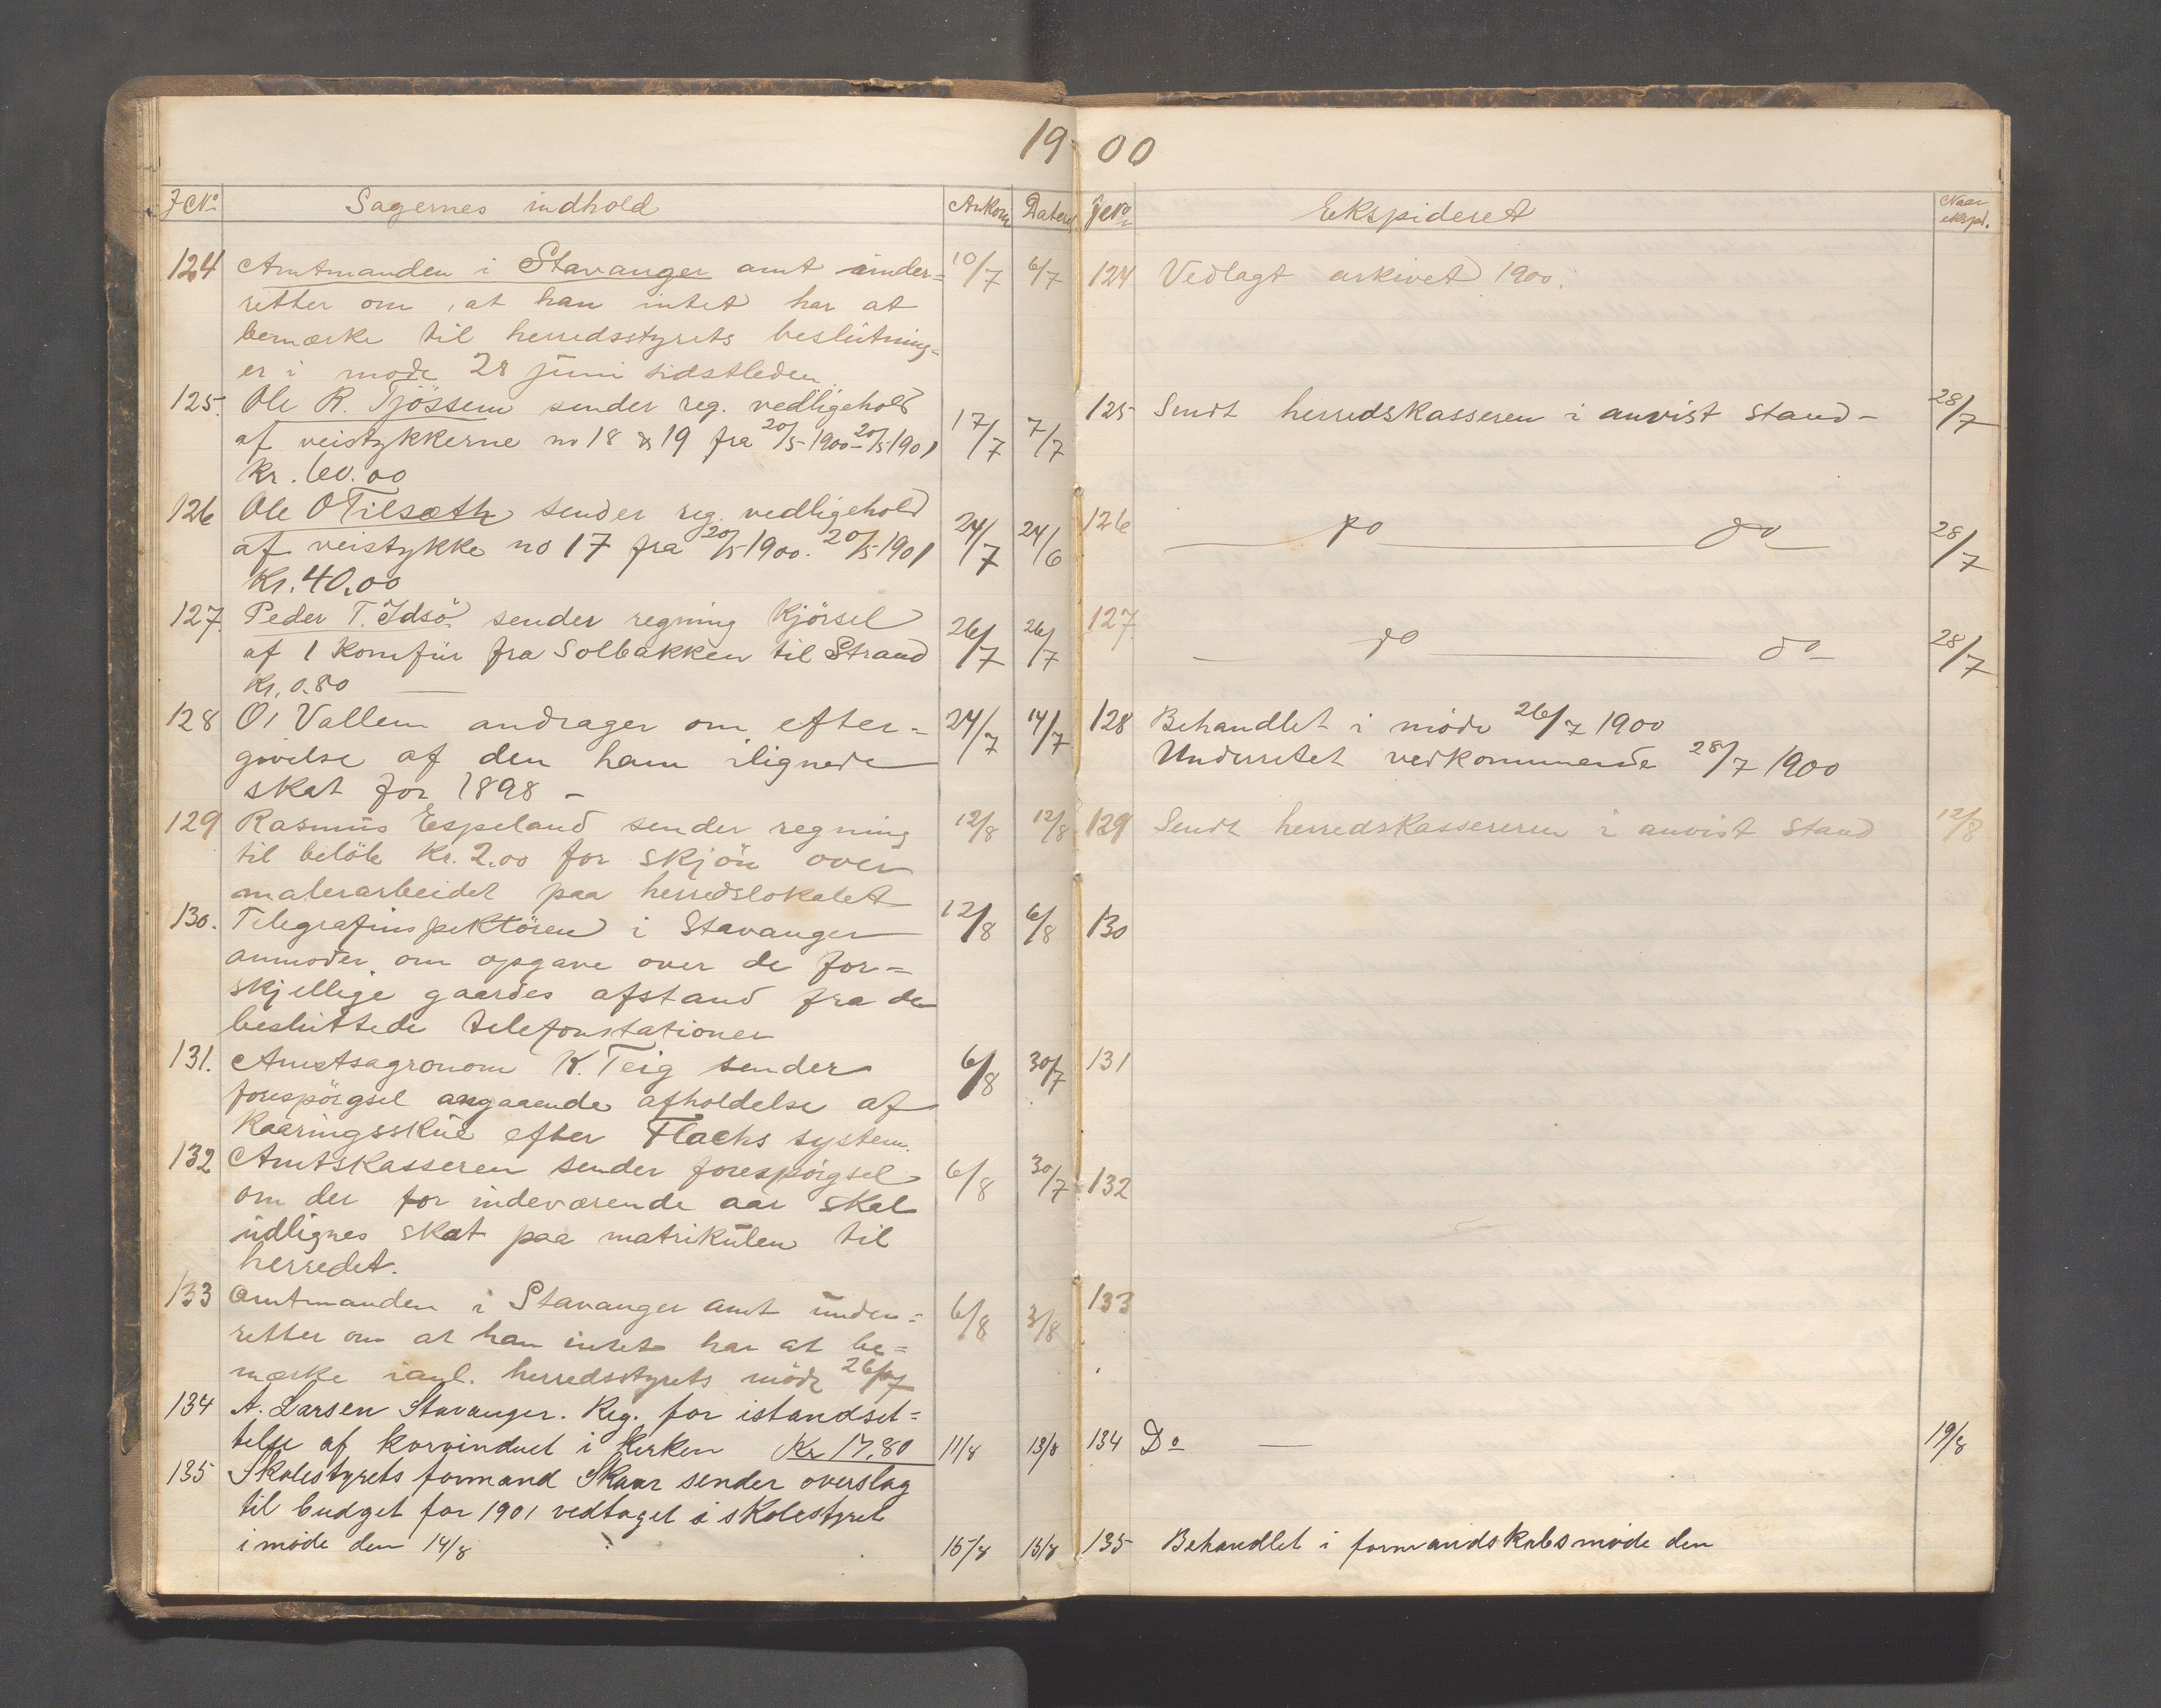 1900
J No Sagernes indhold Ankom Dateret
124 Amtmanden i Stavanger amt under= 10/7 6/7
retter om, at han intet har at
bemærke til herredsstyrets beslutning=
er i møde 28 juni sidstleden
125. Ole R. Tjössem sender reg. vedligehold 17/7 7/7
af veistykkerne no 18 & 19 fra 20/5-1900-20/5 1901
Kr. 60.00
126 Ole O Tilsæth sender reg. vedligehold 24/7 24/6
af veistykke no 17 fra 20/5 1900. 20/5 1901
Kr. 40.00
127. Peder T. Idsö sender regning Kjörsel 26/7 26/7
af 1 Komfür fra Solbakken til Strand
Kr. 0.80 —
128 O. Vallem andrager om efter= 24/7 14/7
givelse af den ham ilignede
skat for 1898 –
129 Rasmus Espeland sender regning 12/8 12/8
til belöb Kr. 2.00 for skjön over
malerarbeidet paa herredslokalet
130. Telegrafinspektören i Stavanger 12/8 6/8
anmoder om opgave over de for=
skjellige gaardes afstand fra de
besluttede telefonstationer
131. Amtsagronom K. Teig sender 6/8 30/7
forespörgsel angaaende afholdelse af
Kaaringsskue efter Flachs system.
132 Amtskasseren sender forespörgsel 6/8 30/7
om der for indeværende aar skal
udlignes skat paa matrikulen til
herredet.
133 Amtmanden i Stavanger amt under= 6/8 3/8
retter om at han intet har at be=
mærke ianl. herredsstyrets möde 26/7
134 A. Larsen Stavanger. Reg. for istandset=
telse af korvinduet i Kirken Kr 17.80 11/8 13/8
135 Skolestyrets formand Skaar sender overslag
til budget for 1901 vedtaget i skolestyret
i møde den 14/8 15/8 15/8
J No Ekspideret Naar ekspd.
124 Vedlagt arkivet 1900.
125 Sendt herredskasseren i anvist stand – 28/7
126 — do — do — 28/7
127 — do — do — 28/7
128 Behandlet i møde 26/7 1900
Underretet vedkommende 28/7 1900
129 Sendt herredskassereren i anvist stand 12/8
130
131
132
133
134 Do — 19/8
135 Behandlet i formandskabsmøde den